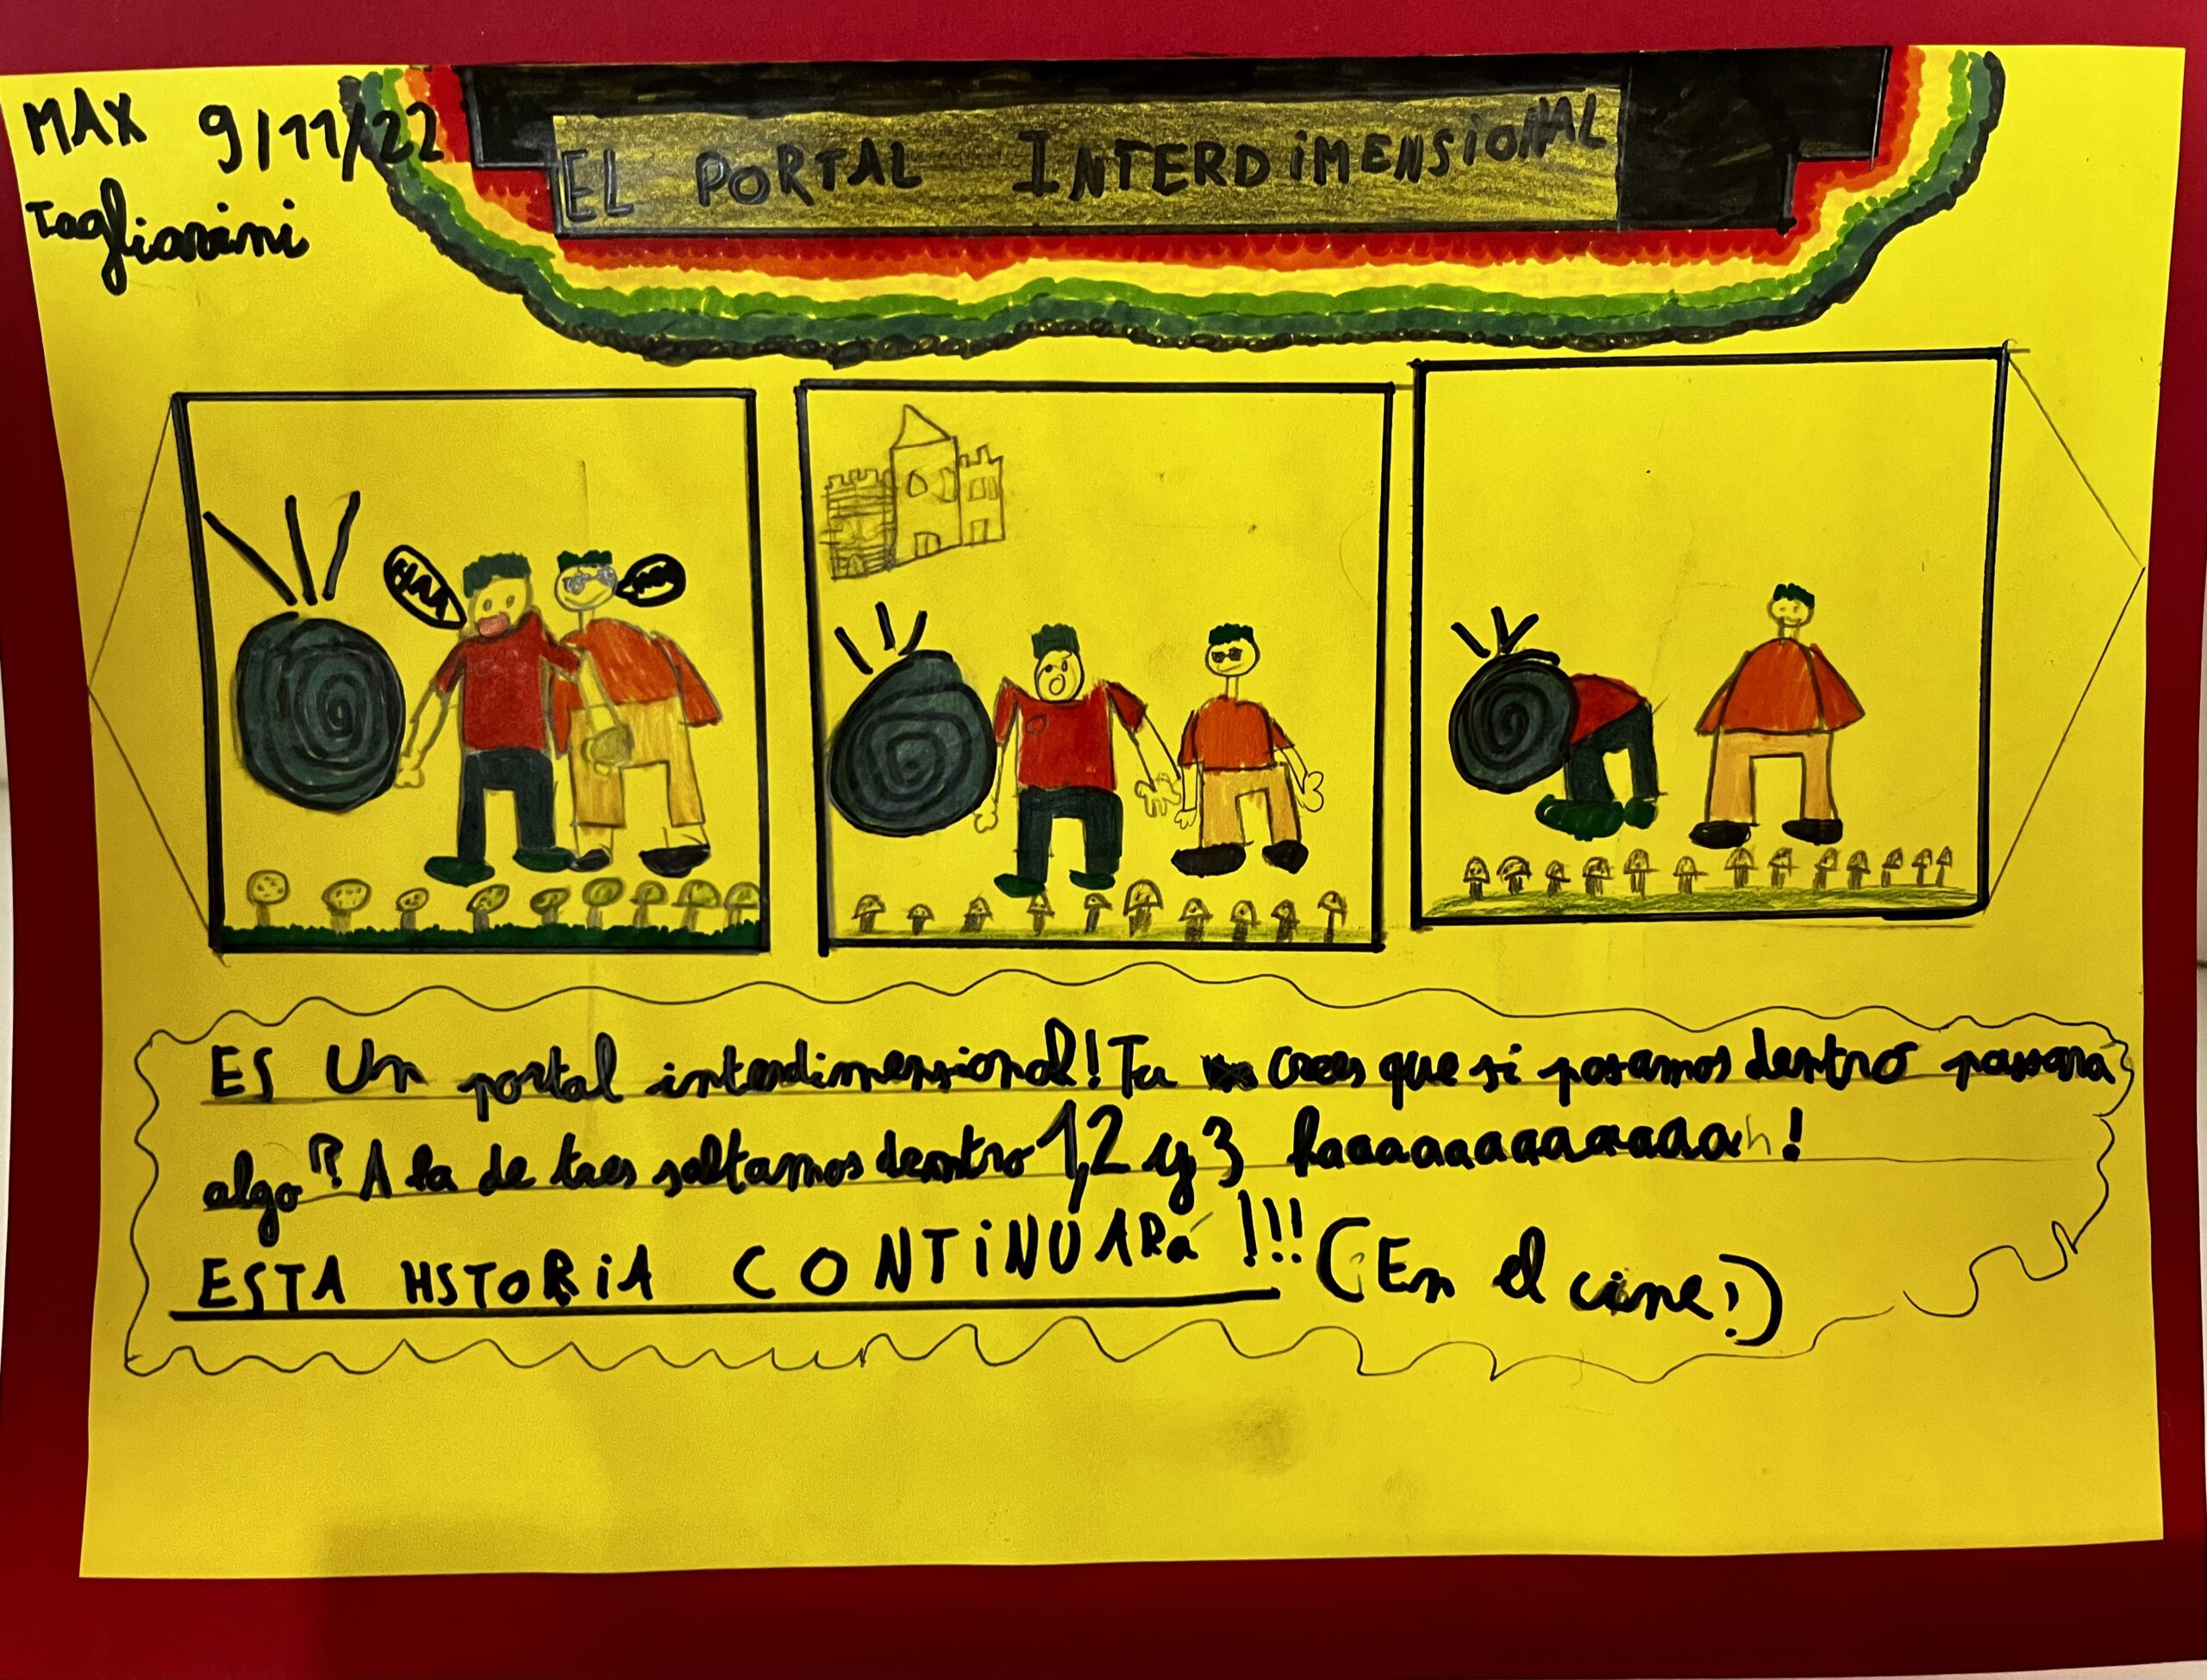 MAX 9/11/22
Tagliarini
EL PORTAL INTERDIMENSIONAL
HAA
ES Un portal interdimensional! Tu crees que si pasamos dentro passara
algo? A la de tres saltamos dentro 1,2 y 3 haaaaaaaaaaaaah!
ESTA HSTORIA CONTINUARá !!! (En el cine!)